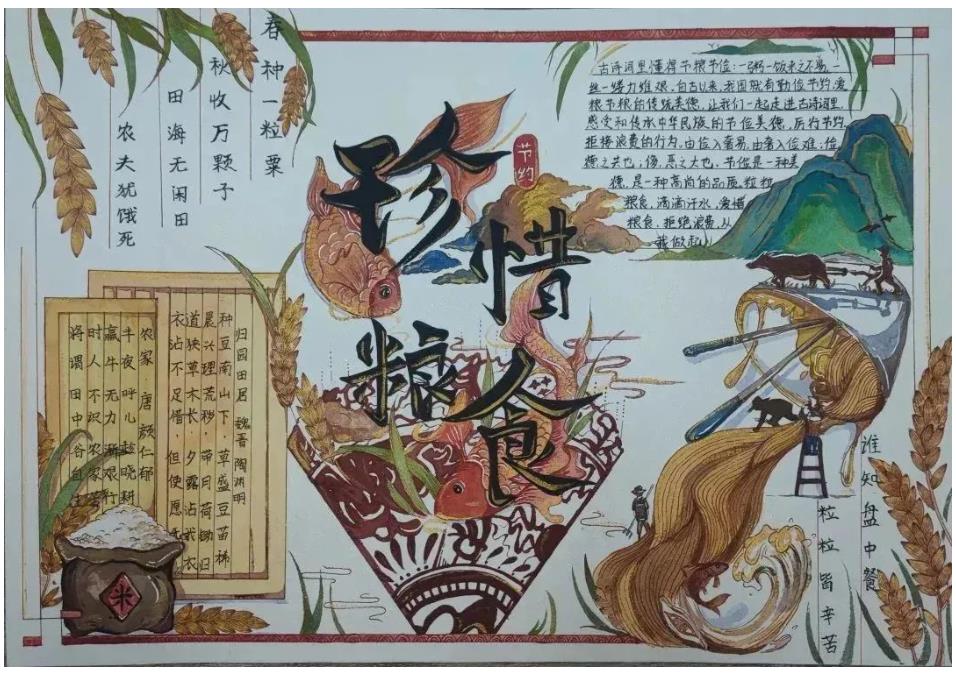 春种一粒粟
秋收万颗子
田海无闲田
农夫犹饿死
珍惜粮食
节约
古诗词里懂得节粮节俭:一粥一饭来之不易,一
丝一缕力难艰,自古以来,我国就有勤俭节约,爱
粮节粮的传统美德,让我们一起走进古诗词里,
感受和传承中华民族的节俭美德,厉行节约
拒接浪费的行为,由俭入奢易,由奢入俭难;俭
德之共也;侈,恶之大也,节俭是一种美
德,是一种高尚的品质,粒粒
粮食,滴滴汗水,爱惜
粮食,拒绝浪费,从
我做起!
归园田居 魏晋 陶渊明
种豆南山下,草盛豆苗稀
晨兴理荒秽,带月荷锄归
道狭草木长,夕露沾我衣
衣沾不足惜,但使愿
农家·唐 颜仁郁
牛夜呼儿趁晓耕
羸牛无力渐艰行
时人不识农家苦
将谓田中谷自生
米
谁知盘中餐
粒粒皆辛苦